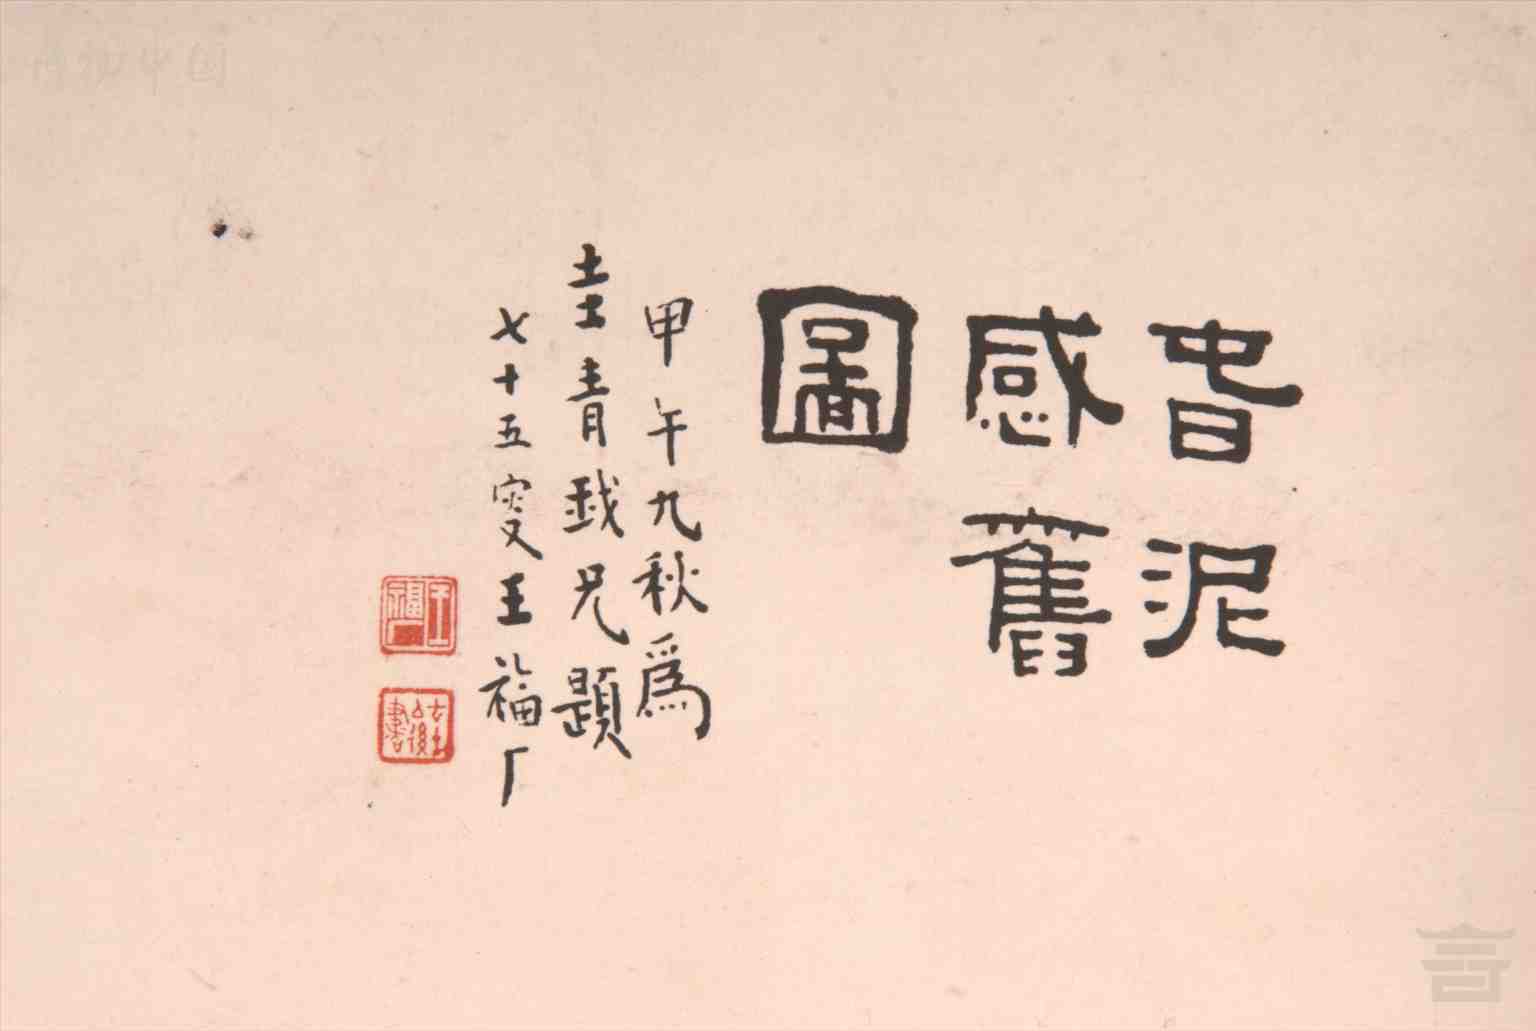 旾泥
感舊
圖
甲午九秋爲
圭青我兄題
七十五叜王福厂
王福厂